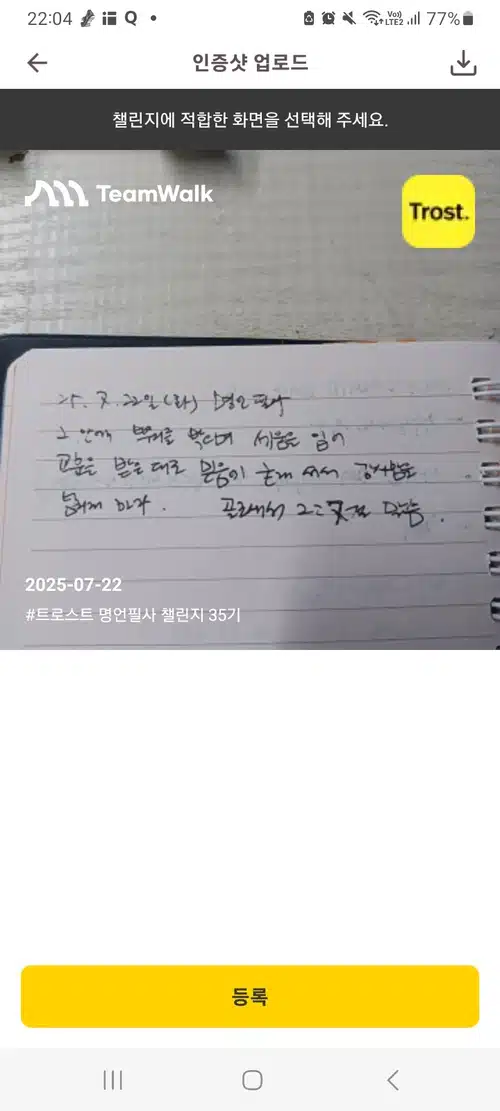 22:04
Vo))
LTE2
77%
인증샷 업로드
챌린지에 적합한 화면을 선택해 주세요.
TeamWalk
Trost.
25. 7. 22일(화) 명언필사
그 안에 뿌리를 박으며 세움을 입어
교훈을 받은 대로 믿음에 굳게 서서 감사함을
넘치게 하라. 골로새서 2:7절 말씀.
2025-07-22
#트로스트 명언필사 챌린지 35기
등록